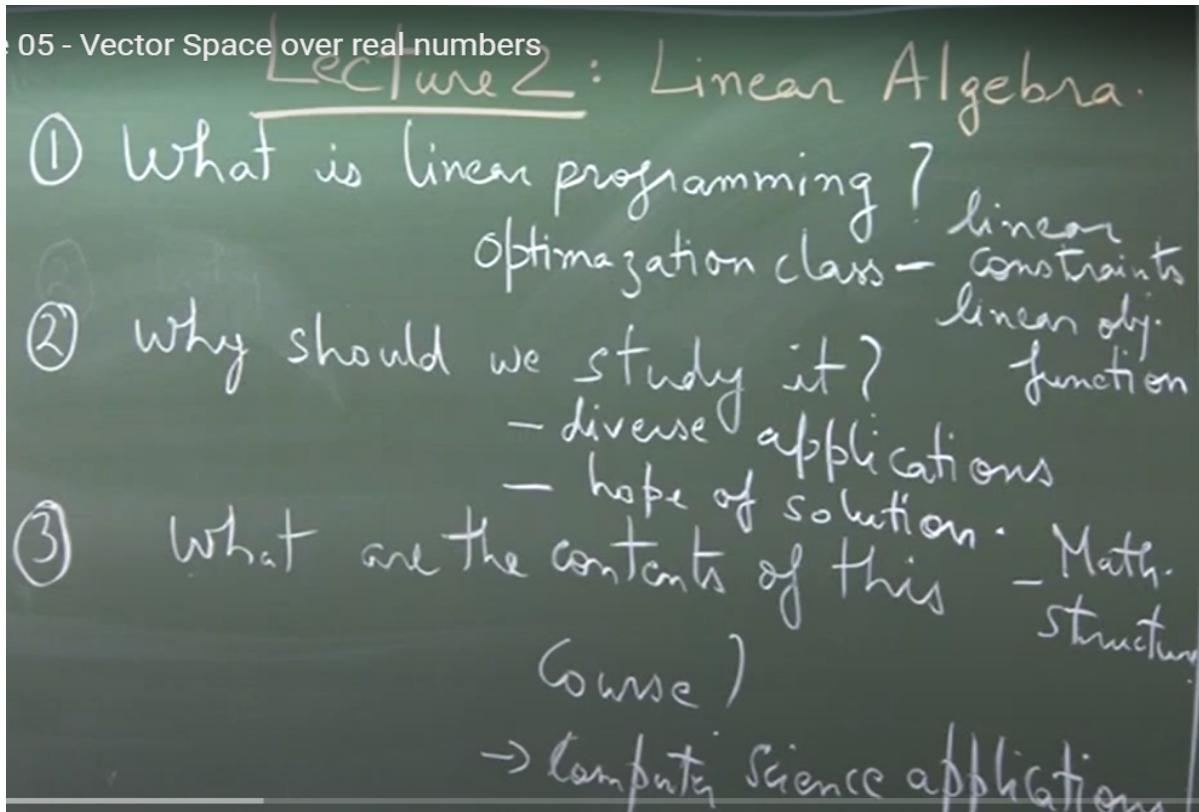 05 - Vector Space over real numbers
Lecture 2 : Linear Algebra.
① What is linear programming ?
Optimazation class – linear
constraints
linear obj.
function
② Why should we study it?
– diverse applications
– hope of solution.
③ What are the contents of this
Course ?
– Math.
structure
→ Computer Science applications